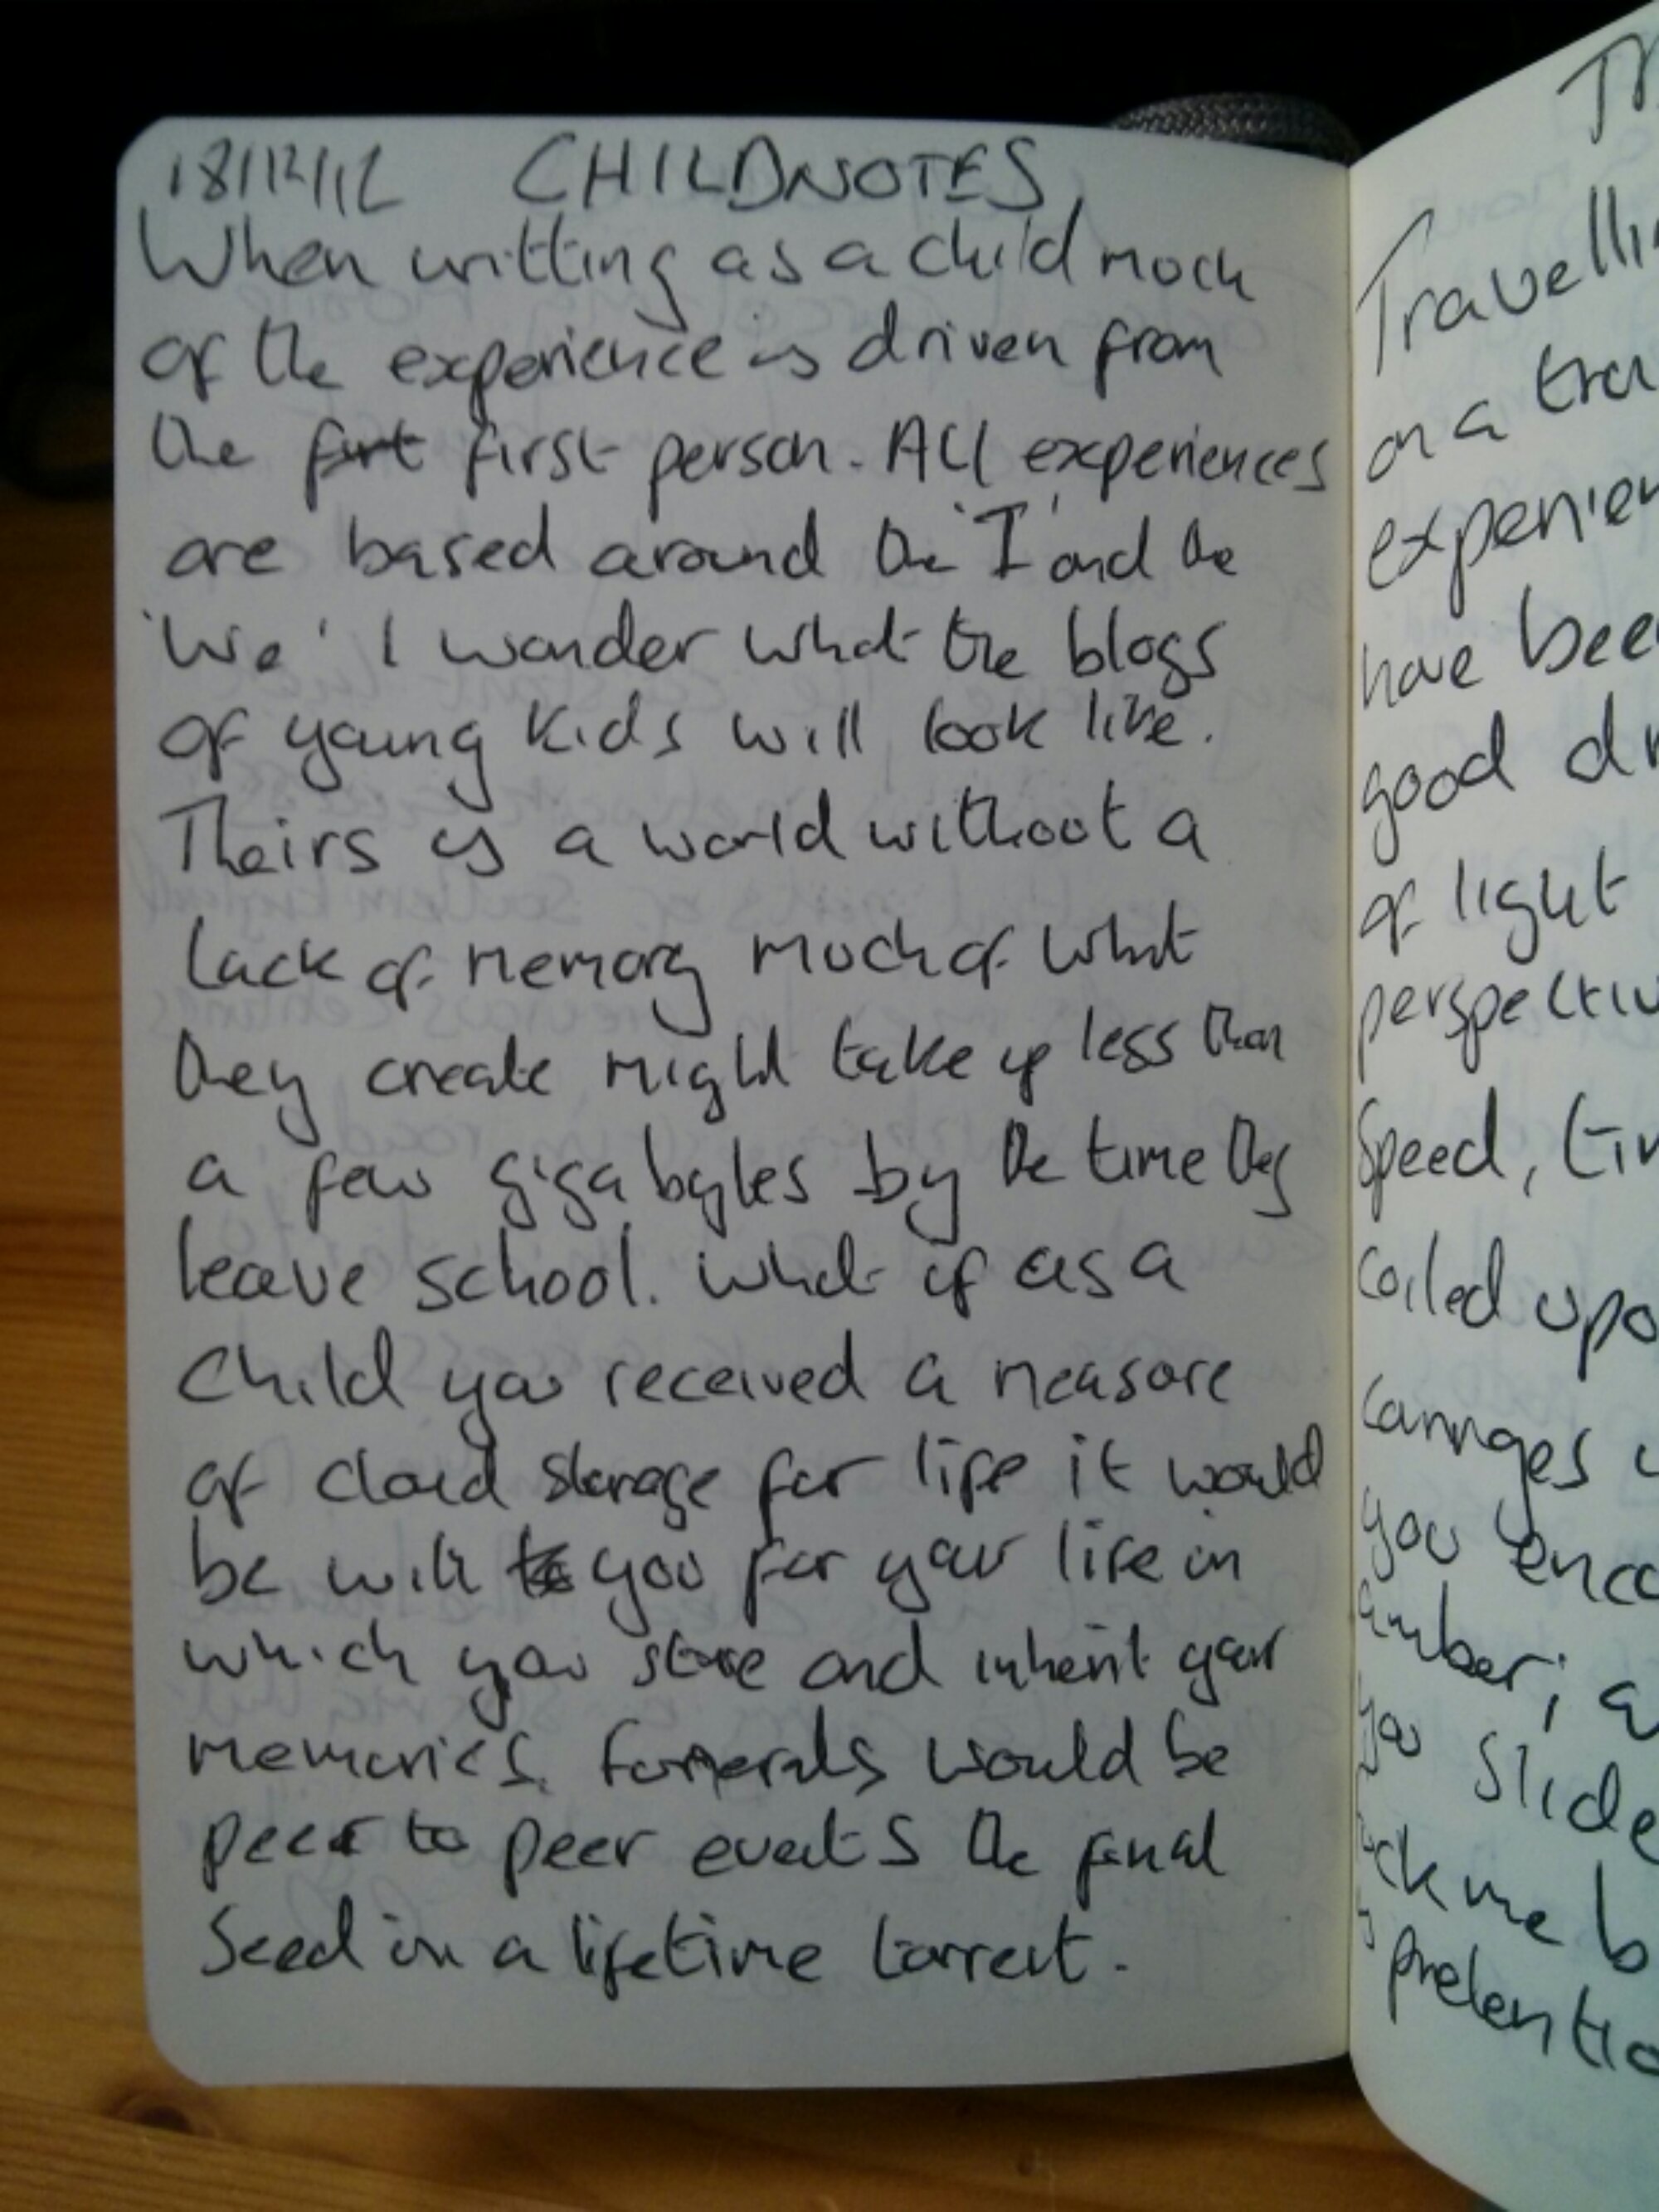 18/12/12 CHILDNOTES
When writting as a child much
of the experience is driven from
the first first person. All experiences
are based around the 'I' and the
'We' I wonder what the blogs
of young kids will look like.
Theirs is a world without a
lack of memory much of what
they create might take up less than
a few gigabytes by the time they
leave school. What if as a
Child you received a measure
of cloud storage for life it would
be with you for your life in
which you store and inherit your
memories. Funerals would be
peer to peer events the final
Seed in a lifetime torrent.
Travelli
on a tra
experien
have bee
good dr
of light
perspectiv
Speed, tim
coiled upo
carriages
you enco
amber; a
you slide
me b
pretentio